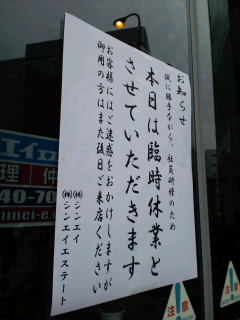 お知らせ
誠に勝手ながら、社員研修のため
本日は臨時休業と
させていただきます
お客様にはご迷惑をおかけしますが
御用の方はまた後日ご来店ください
㈱シンエイ
㈱シンエイエステート
エイエ
理 仲
40-70
hinei-e.c
注意
注意